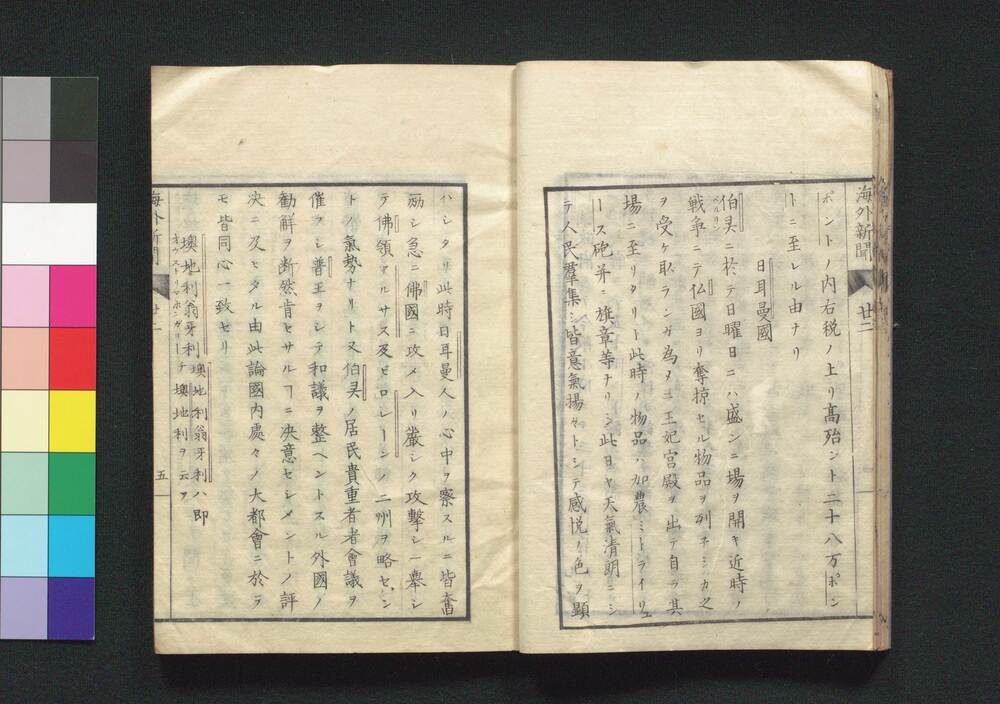 海外新聞 廿二
ポントノ内右税ノ上リ高殆ント二十八万ポン
トニ至レル由ナリ
日耳曼國
伯灵ニ於テ日曜日ニハ盛ンニ場ヲ開キ近時ノ
ベルリン
戦争ニテ仏國ヨリ奪掠セル物品ヲ列子ミカ之
ヲ受ケ取ランガ為メニ王妃宮殿ヲ出テ自ラ其
場ニ至リタリト此時ノ物品ハ加農ミトライリユ
ース砲并ニ旗章等ナリシ此日ヤ天氣清朗ニシ
テ人民羣集シ皆意氣揚々トシテ感悦ノ色ヲ顕
ハシタリ此時日耳曼人ノ心中ヲ察スルニ皆奮
励シ急ニ佛國ニ攻メ入リ嚴シク攻擊シ一舉シ
テ佛領アルサス及ビロレーンノ二州ヲ略セン
トノ氣勢ナリト又伯灵ノ居民貴重者者會議ヲ
催ヲシ普王ヲシテ和議ヲ整ヘントスル外國ノ
勧解ヲ断然肯セサルヿニ決意セシメントノ評
决ニ及ヒタル由此論國内處々ノ大都會ニ於テ
モ皆同心一致セリ
墺地利翁牙利 墺地利翁牙利ハ即
オウストリヤホンガリーナ 墺地利ヲ云フ
海外新聞 廿二 五